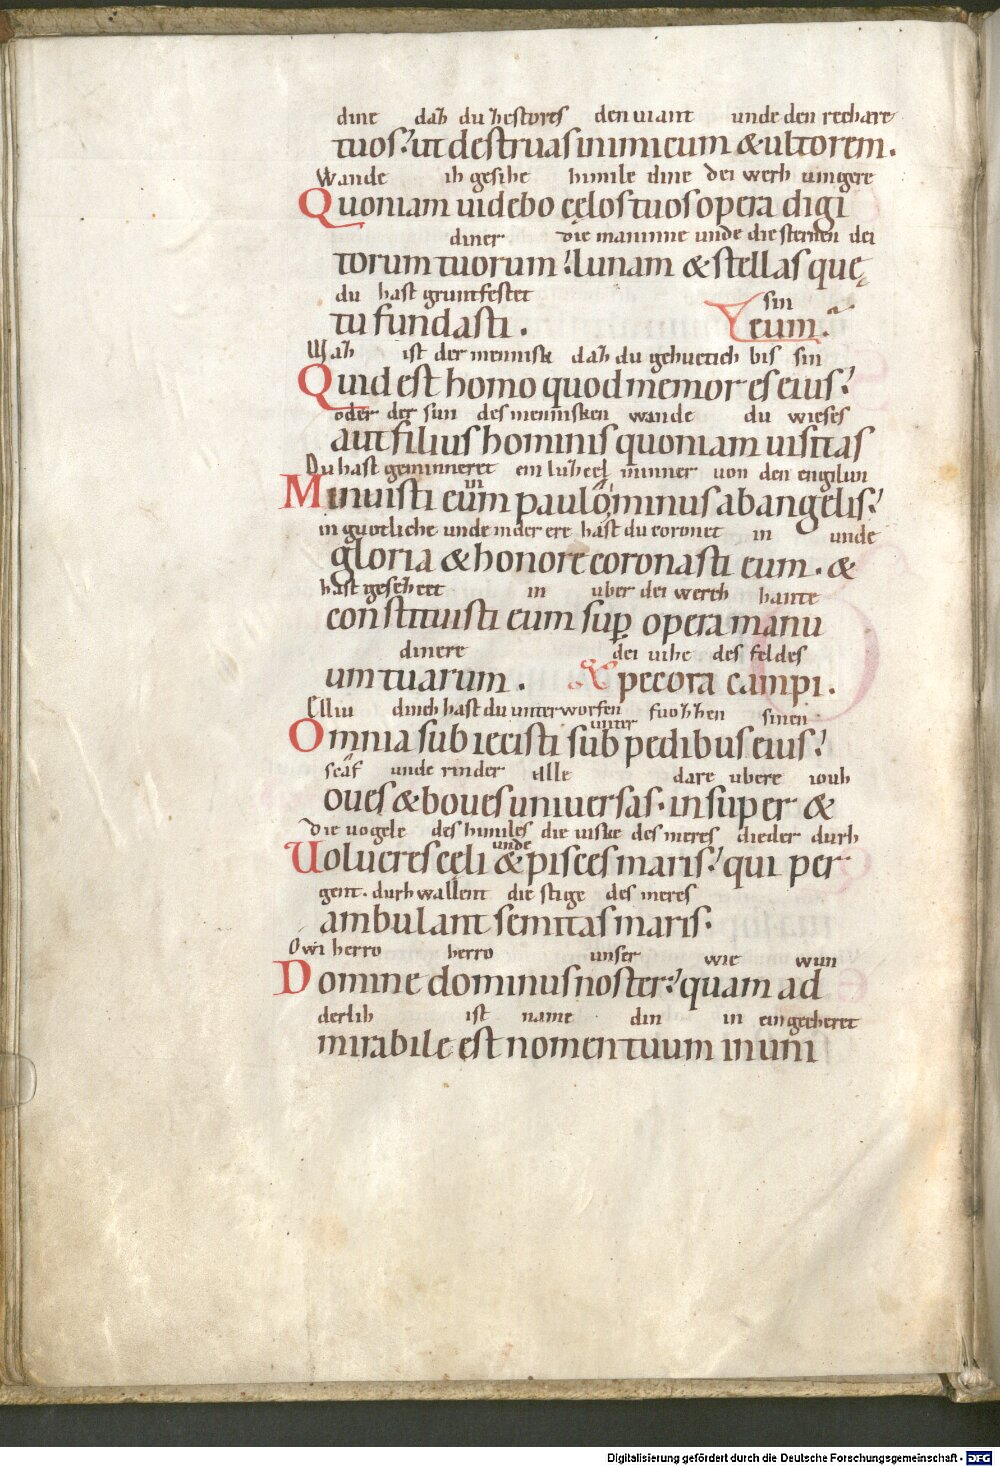 dine daz du zestores den viant unde den rechare
tuos. ut destruas inimicum & ultorem.
Wande ih gesihe himile dine dei werh vingere
Quoniam uidebo cęlos tuos opera digi
diner die maninne unde die sternen dei
torum tuorum. lunam & stellas quę
du hast gruntfestet sin
tu fundasti. eum.
Waz ist der mennisk daz du gehuctich bis sin
Quid est homo quod memor es eius?
oder der sun des mennisken wande du wieses
aut filius hominis quoniam uisitas
Du hast geminneret in ein luzcel minner von den engilun
Minuisti eum paulo minus ab angelis.
in guotliche unde in der ere hast du coronet in unde
gloria & honore coronasti eum. &
hast gesezcet in uber dei werch hante
constituisti eum sup opera manu
dinere dei vihe des feldes
um tuarum. & pecora campi.
Elliu dinch hast du unterworfen unter fuozzen sinen
Omnia subiecisti sub pedibus eius.
scaf unde rinder elle dare ubere iouh
oues & boues uniuersas. insuper &
die uogele des himiles unde die viske des meres dieder durh
Uolucres celi & pisces maris. qui per
gent. durhwallent die stige des meres
ambulant semitas maris.
Owi herro herro unser wie wun
Domine dominus noster. quam ad
derlih ist name din in eingecheret
mirabile est nomen tuum in uni
Digitalisierung gefördert durch die Deutsche Forschungsgemeinschaft - DFG